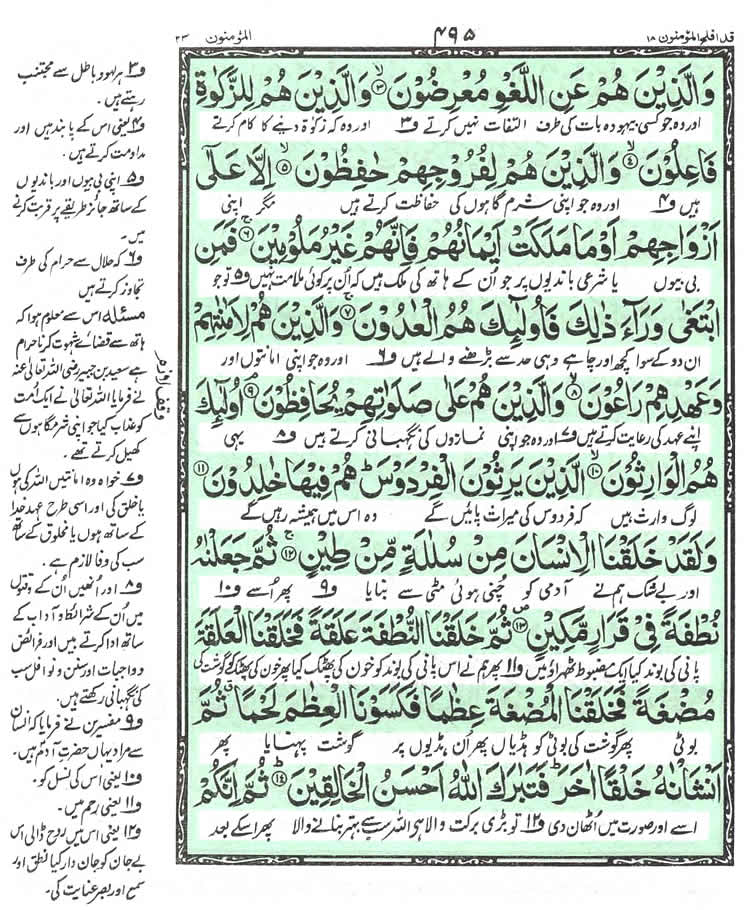 قد افلح المؤمنون ١٨
٤٩٥
المؤمنون ٢٣
وَالَّذِيْنَ هُمْ عَنِ اللَّغْوِ مُعْرِضُوْنَ ۙ﴿٣﴾ وَالَّذِيْنَ هُمْ لِلزَّكٰوةِ
اور وہ جو کسی بیہودہ بات کی طرف التفات نہیں کرتے ف۳ اور وہ کہ زکوٰۃ دینے کا کام کرتے
فَاعِلُوْنَ ۙ﴿٤﴾ وَالَّذِيْنَ هُمْ لِفُرُوْجِهِمْ حٰفِظُوْنَ ۙ﴿٥﴾ اِلَّا عَلٰٓى
ہیں ف۴ اور وہ جو اپنی شرم گاہوں کی حفاظت کرتے ہیں مگر اپنی
اَزْوَاجِهِمْ اَوْ مَا مَلَكَتْ اَيْمَانُهُمْ فَاِنَّهُمْ غَيْرُ مَلُوْمِيْنَ ۚ﴿٦﴾ فَمَنِ
بی بیوں یا شرعی باندیوں پر جو اُن کے ہاتھ کی ملک ہیں کہ اُن پر کوئی ملامت نہیں ف۵ تو جو
ابْتَغٰى وَرَآءَ ذٰلِكَ فَاُولٰٓئِكَ هُمُ الْعٰدُوْنَ ۚ﴿٧﴾ وَالَّذِيْنَ هُمْ لِاَمٰنٰتِهِمْ
ان دو کے سوا کچھ اور چاہے وہی حد سے بڑھنے والے ہیں ف۶ اور وہ جو اپنی امانتوں اور
وَعَهْدِهِمْ رَاعُوْنَ ۙ﴿٨﴾ وَالَّذِيْنَ هُمْ عَلٰى صَلَوٰتِهِمْ يُحَافِظُوْنَ ۘ﴿٩﴾ اُولٰٓئِكَ
اپنے عہد کی رعایت کرتے ہیں ف۷ اور وہ جو اپنی نمازوں کی نگہبانی کرتے ہیں ف۸ یہی
هُمُ الْوَارِثُوْنَ ۙ﴿١٠﴾ الَّذِيْنَ يَرِثُوْنَ الْفِرْدَوْسَ ؕ هُمْ فِيْهَا خٰلِدُوْنَ ﴿١١﴾
لوگ وارث ہیں کہ فردوس کی میراث پائیں گے وہ اس میں ہمیشہ رہیں گے
وَلَقَدْ خَلَقْنَا الْاِنْسَانَ مِنْ سُلٰلَةٍ مِّنْ طِيْنٍ ۚ﴿١٢﴾ ثُمَّ جَعَلْنٰهُ
اور بے شک ہم نے آدمی کو چُنی ہوئی مٹی سے بنایا ف۹ پھر اُسے ف۱۰
نُطْفَةً فِيْ قَرَارٍ مَّكِيْنٍ ۪﴿١٣﴾ ثُمَّ خَلَقْنَا النُّطْفَةَ عَلَقَةً فَخَلَقْنَا الْعَلَقَةَ
پانی کی بوند کیا ایک مضبوط ٹھہراؤ میں ف۱۱ پھر ہم نے اس پانی کی بوند کو خون کی پھٹک کیا پھر خون کی پھٹک کو گوشت کی
مُضْغَةً فَخَلَقْنَا الْمُضْغَةَ عِظٰمًا فَكَسَوْنَا الْعِظٰمَ لَحْمًا ۗ ثُمَّ
بوٹی پھر گوشت کی بوٹی کو ہڈیاں پھر اُن ہڈیوں پر گوشت پہنایا پھر
اَنْشَاْنٰهُ خَلْقًا اٰخَرَ ؕ فَتَبٰرَكَ اللّٰهُ اَحْسَنُ الْخَالِقِيْنَ ؕ﴿١٤﴾ ثُمَّ اِنَّكُمْ
اسے اور صورت میں اُٹھان دی ف۱۲ تو بڑی برکت والا ہے اللہ سب سے بہتر بنانے والا پھر اس کے بعد
ف۳ ہر لہو و باطل سے مجتنب
رہتے ہیں ۔
ف۴ یعنی اس کے پابند ہیں اور
مداومت کرتے ہیں ۔
ف۵ اپنی بی بیوں اور باندیوں
کے ساتھ جائز طریقے پر قربت کرنے
میں ۔
ف۶ کہ حلال سے حرام کی طرف
تجاوز کرتے ہیں
مسئلہ اس سے معلوم ہوا کہ
ہاتھ سے قضائے شہوت کرنا حرام
ہے سعید بن جبیر رضی اللہ تعالیٰ عنہ
نے فرمایا اللہ تعالیٰ نے ایک اُمت
کو عذاب کیا جو اپنی شرمگاہوں سے
کھیل کرتے تھے ۔
ف۷ خواہ وہ امانتیں اللہ کی ہوں
یا خلق کی اور اسی طرح عہد خدا
کے ساتھ ہوں یا مخلوق کے ساتھ
سب کی وفا لازم ہے ۔
ف۸ اور اُنھیں اُن کے وقتوں
میں اُن کے شرائط و آداب کے
ساتھ ادا کرتے ہیں اور فرائض
و واجبات اور سنن و نوافل سب
کی نگہبانی رکھتے ہیں ۔
ف۹ مفسرین نے فرمایا کہ انسان
سے مراد یہاں حضرت آدم ہیں ۔
ف۱۰ یعنی اس کی نسل کو ۔
ف۱۱ یعنی رحم میں ۔
ف۱۲ یعنی اس میں روح ڈالی اس
بے جان کو جان دار کیا نطق اور
سمع اور بصر عنایت کی ۔
وقف لازم